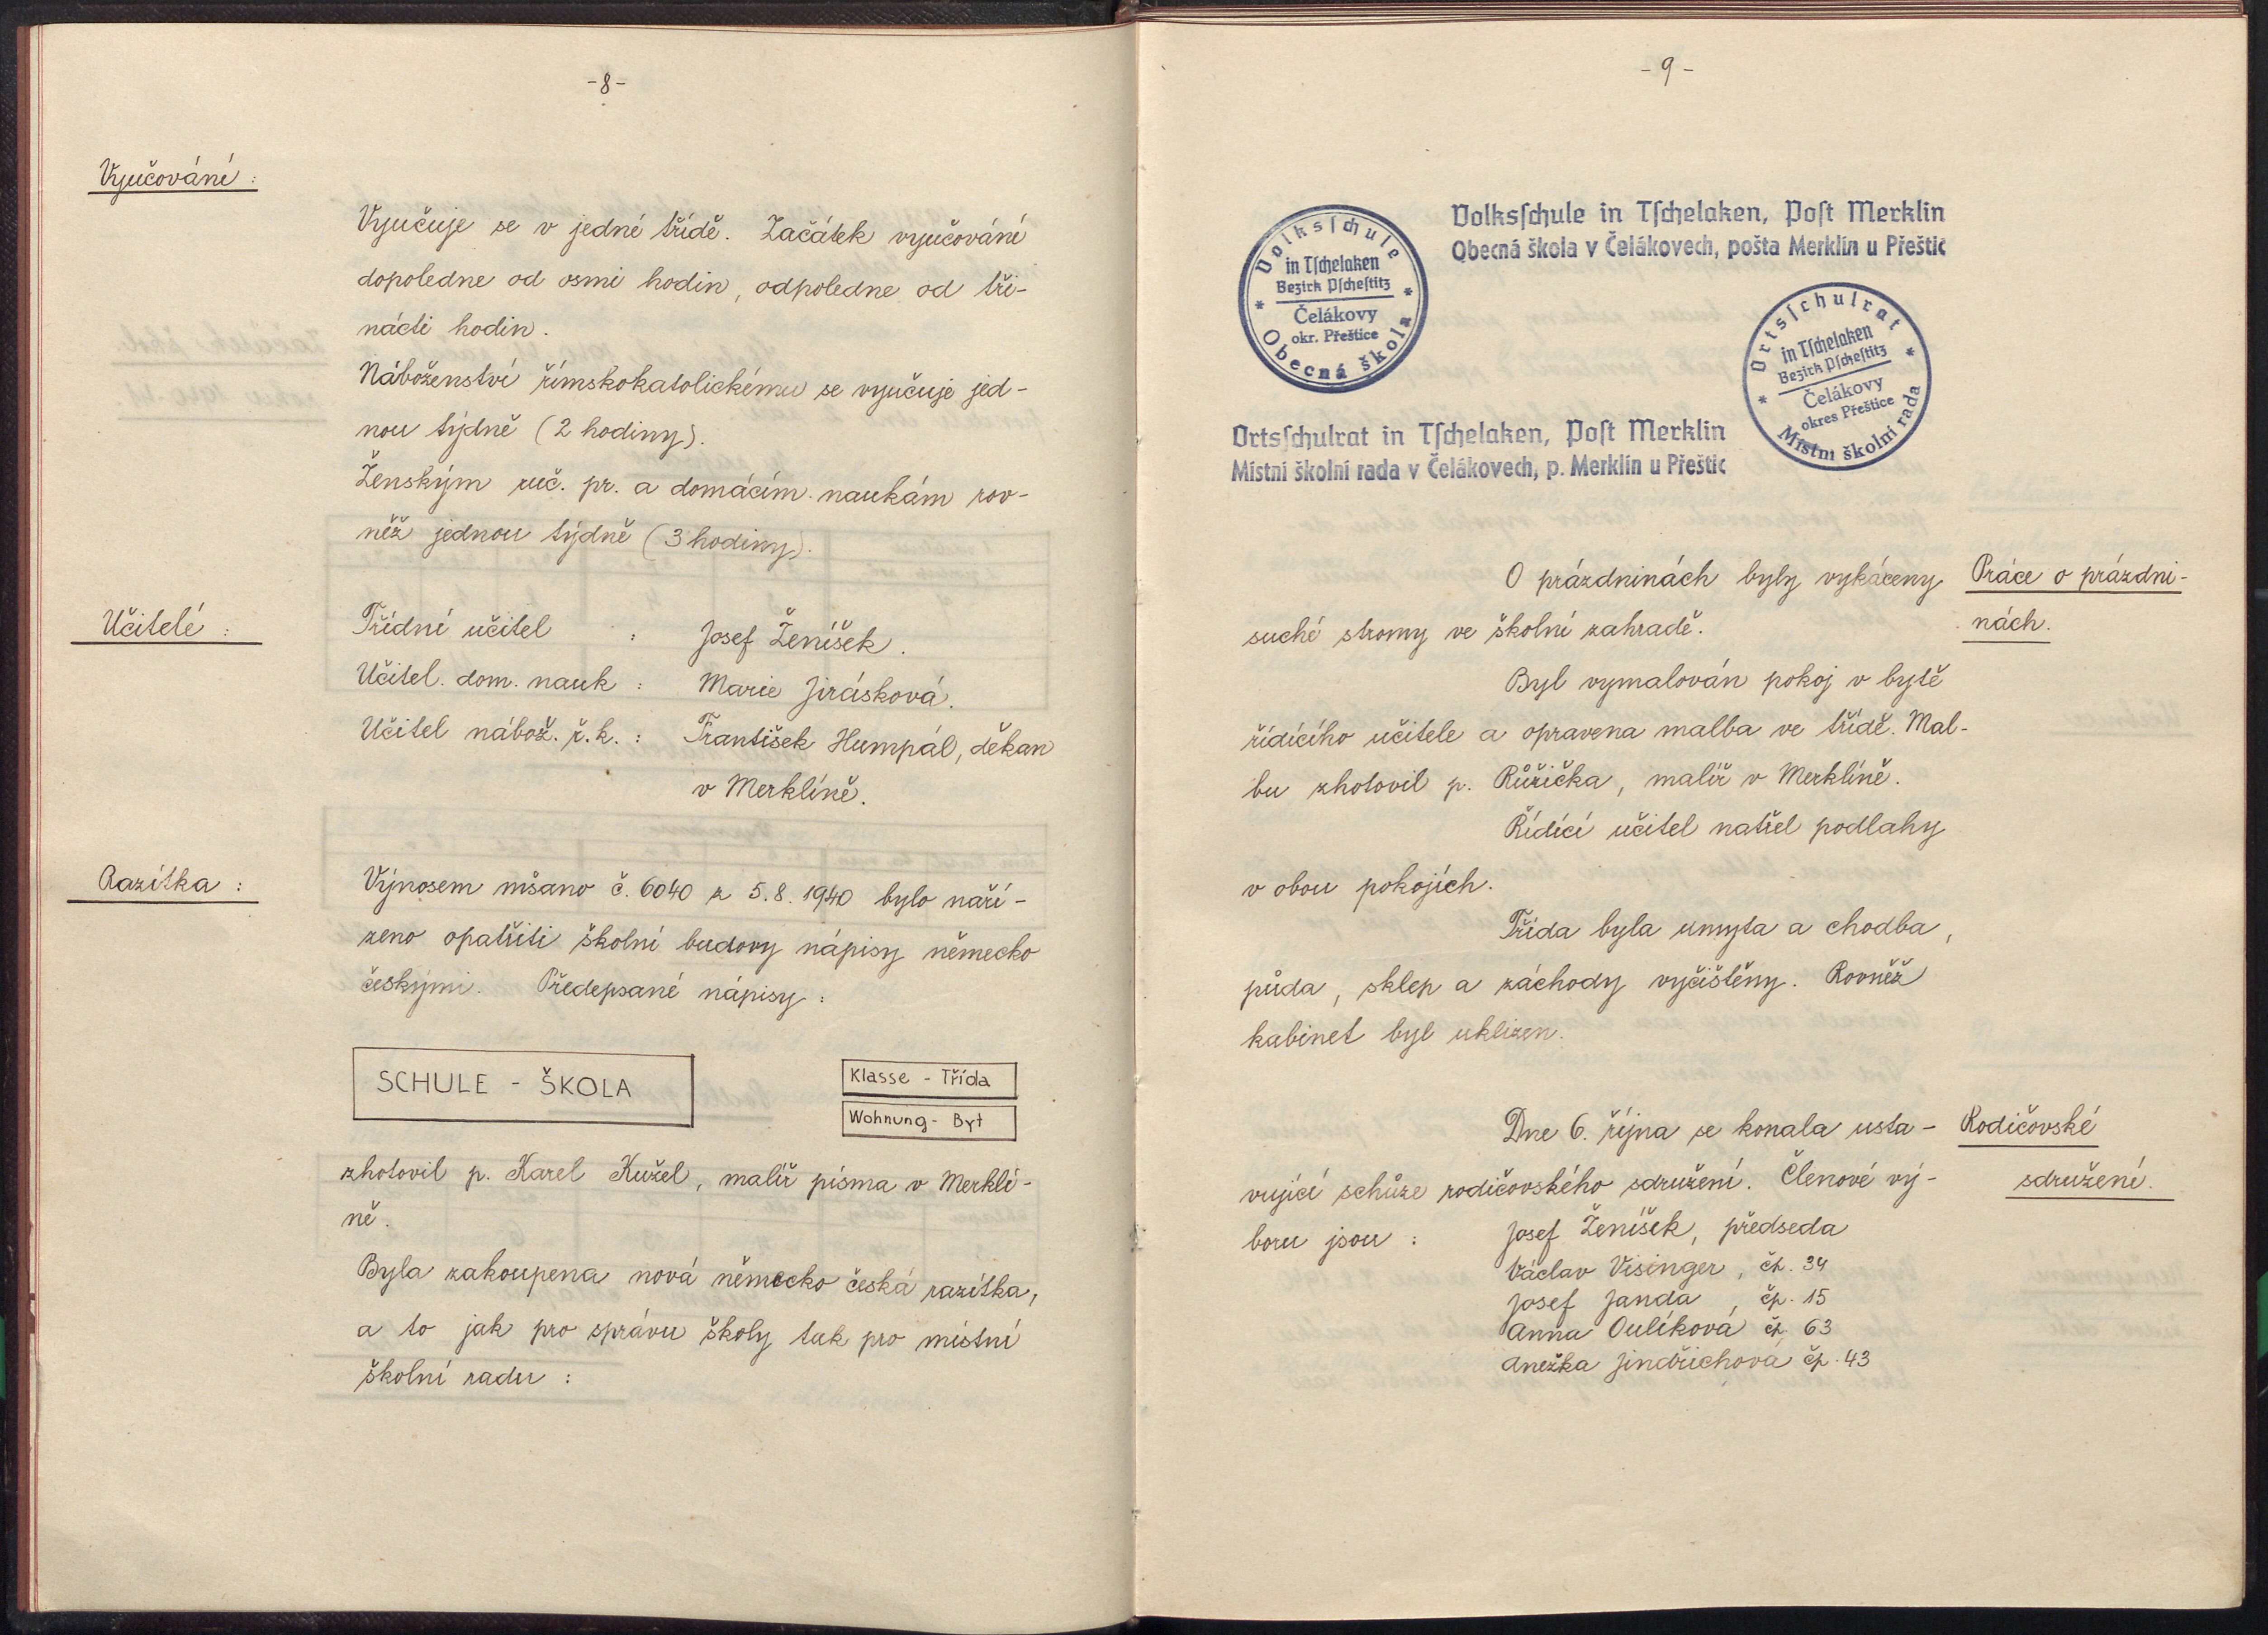 -8-
Vyučování:
Vyučuje se v jedné třídě. Začátek vyučování
dopoledne od osmi hodin, odpoledne od tři-
nácti hodin.
Náboženství římskokatolickému se vyučuje jed-
nou týdně (2 hodiny).
Ženským ruč. pr. a domácím naukám rov-
něž jednou týdně (3 hodiny).
Učitelé:
Třídní učitel : Josef Ženíšek.
Učitel. dom. nauk : Marie Jirásková.
Učitel nábož. ř.k. : František Humpál, děkan
v Merklíně.
Razítka:
Výnosem mšano č. 6040 z 5.8.1940 bylo naří-
zeno opatřiti školní budovy nápisy německo
českými. Předepsané nápisy:
SCHULE - ŠKOLA
Klasse - Třída
Wohnung - Byt
zhotovil p. Karel Kužel, malíř písma v Merklí-
ně.
Byla zakoupena nová německo česká razítka,
a to jak pro správu školy tak pro místní
školní radu :
-9-
Volksschule in Tschelaken, Post Merklin
Obecná škola v Čelákovech, pošta Merklín u Přeštic
Volksschule
in Tschelaken
Bezirk Pschestitz
Čelákovy
okr. Přeštice
Obecná škola
Ortsschulrat
in Tschelaken
Bezirk Pschestitz
Čelákovy
okres Přeštice
Místní školní rada
Ortsschulrat in Tschelaken, Post Merklin
Místní školní rada v Čelákovech, p. Merklín u Přeštic
Práce o prázdni-
nách.
O prázdninách byly vykáceny
suché stromy ve školní zahradě.
Byl vymalován pokoj v bytě
řídícího učitele a opravena malba ve třídě. Mal-
bu zhotovil p. Růžička, malíř v Merklíně.
Řídící učitel natřel podlahy
v obou pokojích.
Třída byla umyta a chodba,
půda, sklep a záchody vyčištěny. Rovněž
kabinet byl uklizen.
Rodičovské
sdružení.
Dne 6. října se konala usta-
vující schůze rodičovského sdružení. Členové vý-
boru jsou : Josef Ženíšek, předseda
Václav Visinger, čp. 34
Josef Janda, čp. 15
Anna Oulíková čp. 63
Anežka Jindřichová čp. 43